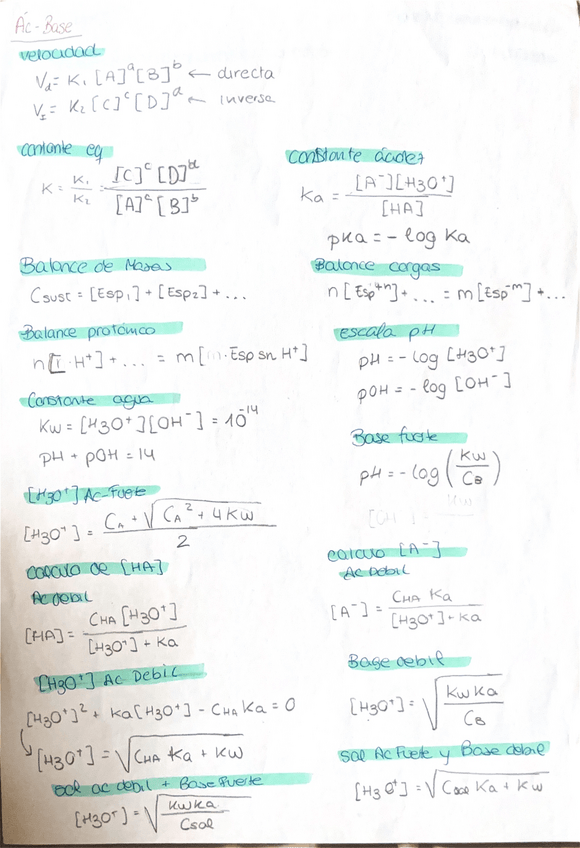 Ác-Base
velocidad
V_d = K₁ [A]^a [B]^b ← directa
V_I = K₂ [C]^c [D]^d ← inversa
contante eq
K = K₁/K₂ = [C]^c [D]^d / [A]^a [B]^b
Constante ácidez
Ka = [A⁻][H3O⁺] / [HA]
pKa = - log Ka
Balance de Masas
C sust = [Esp₁] + [Esp₂] + ...
Balance cargas
n[Esp⁺ⁿ] + ... = m[Esp⁻ᵐ] + ...
Balance protónico
n[ · H⁺] + ... = m[ · Esp sn H⁺]
escala pH
pH = - log [H3O⁺]
pOH = - log [OH⁻]
Constante agua
Kw = [H3O⁺][OH⁻] = 10⁻¹⁴
pH + pOH = 14
Base fuerte
pH = - log (Kw / C_B)
[H3O⁺] Ac-Fuerte
[H3O⁺] = C_A + √(C_A² + 4Kw) / 2
calculo de [HA]
Ac debil
[HA] = C_HA [H3O⁺] / [H3O⁺] + Ka
calculo [A⁻]
Ac Debil
[A⁻] = C_HA Ka / [H3O⁺] + Ka
[H3O⁺] Ac Debil
[H3O⁺]² + Ka[H3O⁺] - C_HA Ka = 0
↳ [H3O⁺] = √(C_HA Ka + Kw)
Base debil
[H3O⁺] = √(Kw Ka / C_B)
sal ac debil + Base Fuerte
[H3O⁺] = √(Kw Ka / Csal)
sal Ac Fuerte y Base debil
[H3O⁺] = √(Csal Ka + Kw)